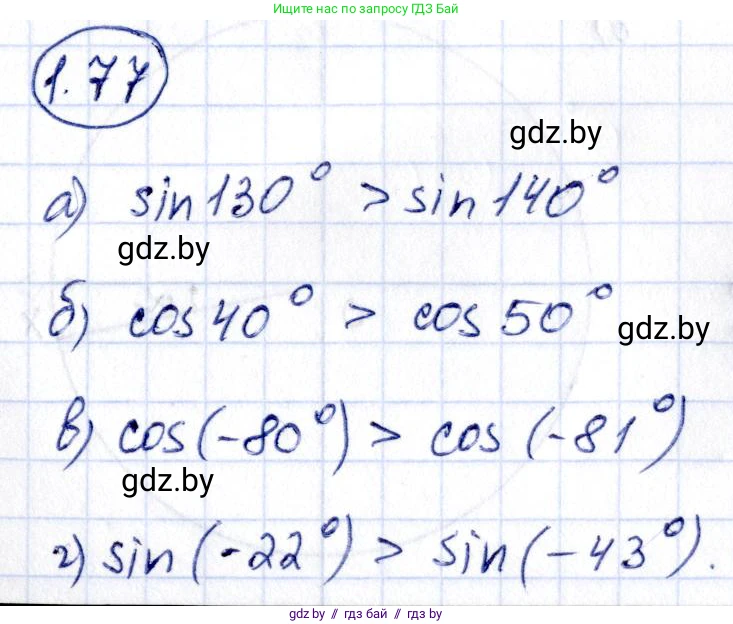 Ищите нас на любой платформе по запросу ГДЗ Бай
1.77
gdz.by
а) sin 130° > sin 140°
gdz.by
б) cos 40° > cos 50°
gdz.by
в) cos (-80°) > cos (-81°)
gdz.by
г) sin (-22°) > sin (-43°).
gdz.by // гдз бай // гдз by